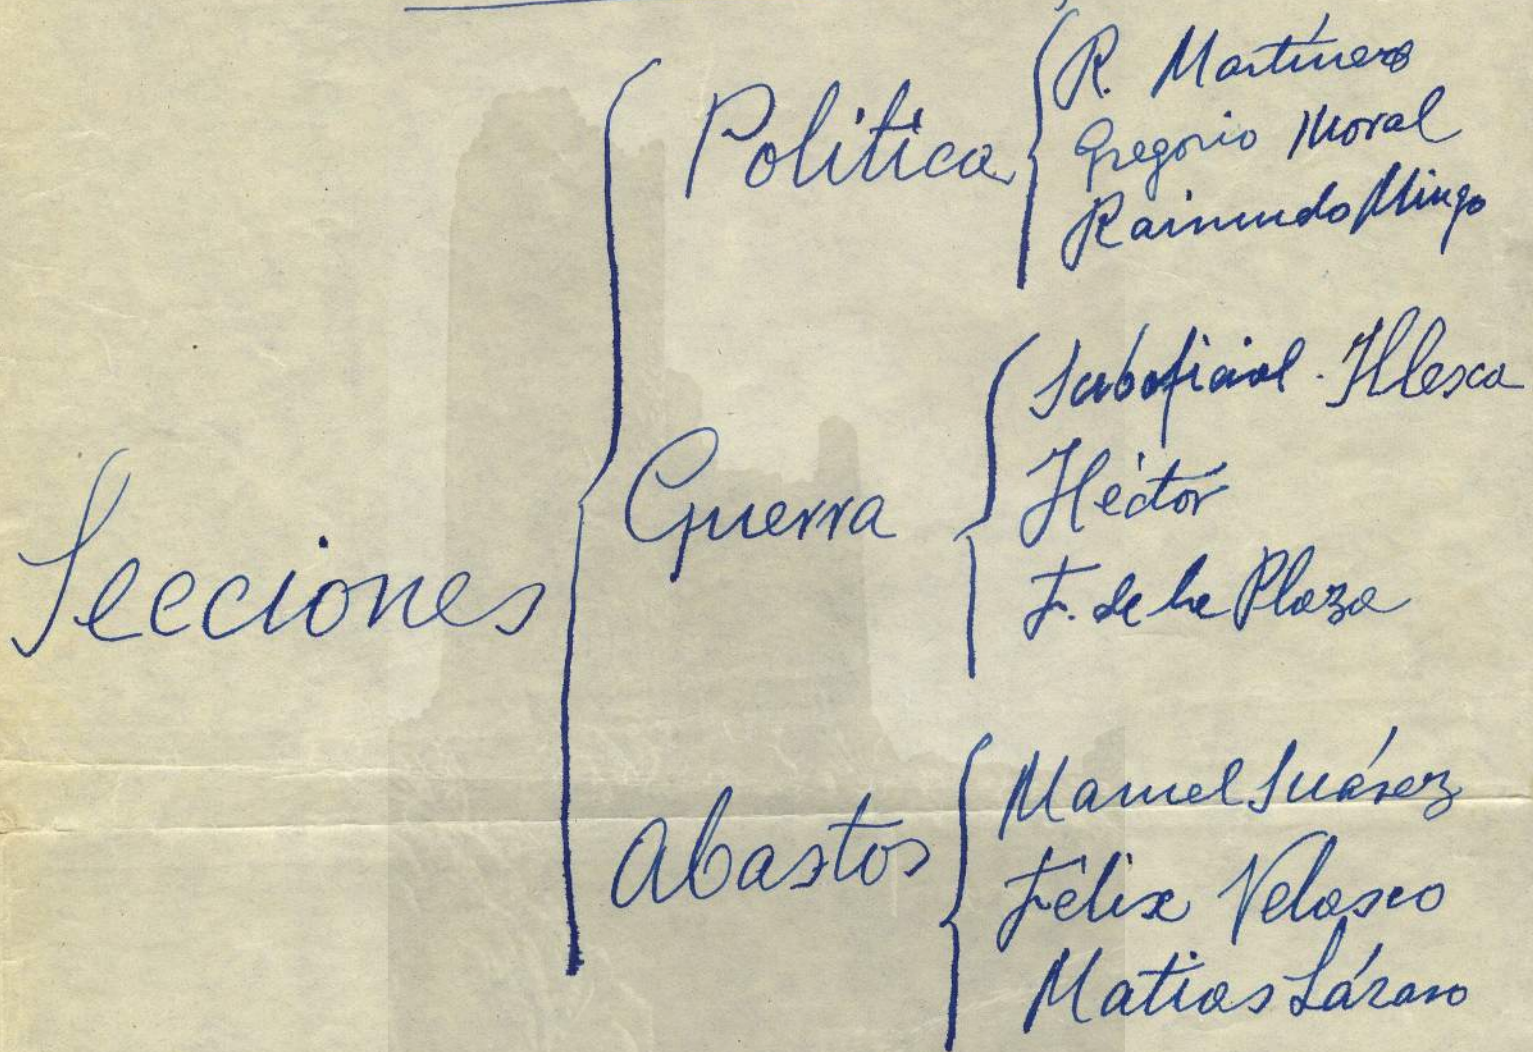 Secciones
Politica
R. Martínez
Gregorio Moral
Raimundo Mingo
Guerra
Suboficial - Illesca
Héctor
F. de la Plaza
Abastos
Manuel Suárez
Félix Velasco
Matias Lázaro